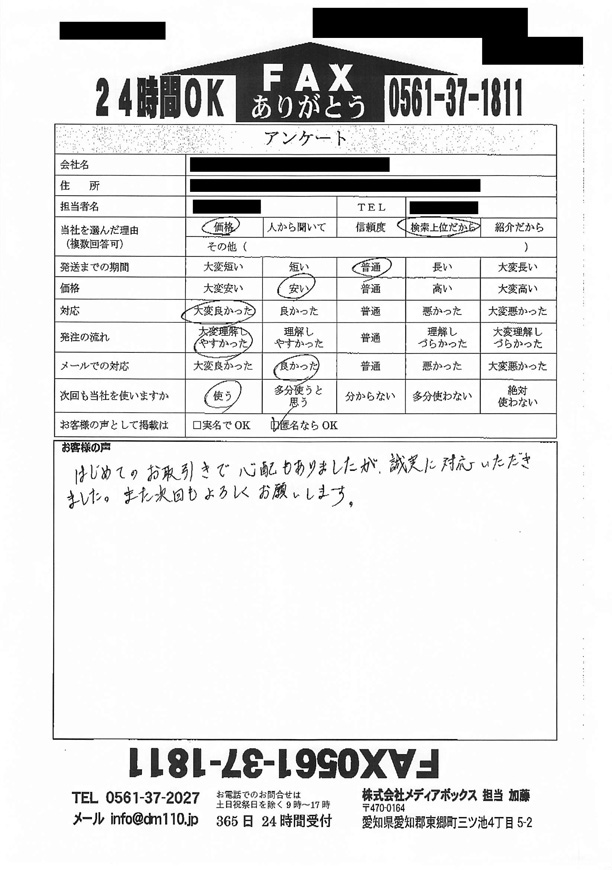 FAX
24時間OK ありがとう 0561-37-1811
アンケート
会社名
住 所
担当者名 TEL
当社を選んだ理由 価格 人から聞いて 信頼度 検索上位だから 紹介だから
(複数回答可) その他( )
発送までの期間 大変短い 短い 普通 長い 大変長い
価格 大変安い 安い 普通 高い 大変高い
対応 大変良かった 良かった 普通 悪かった 大変悪かった
発注の流れ 大変理解しやすかった 理解しやすかった 普通 理解しづらかった 大変理解しづらかった
メールでの対応 大変良かった 良かった 普通 悪かった 大変悪かった
次回も当社を使いますか 使う 多分使うと思う 分からない 多分使わない 絶対使わない
お客様の声として掲載は □実名でOK □匿名ならOK
お客様の声
はじめてのお取引きで心配もありましたが、誠実に対応いただき
ました。また次回もよろしくお願いします。
FAX0561-37-1811
TEL 0561-37-2027 お電話でのお問合せは 株式会社メディアボックス 担当 加藤
土日祝祭日を除く9時〜17時 〒470-0164
メール info@dm110.jp 365日 24時間受付 愛知県愛知郡東郷町三ツ池4丁目5-2